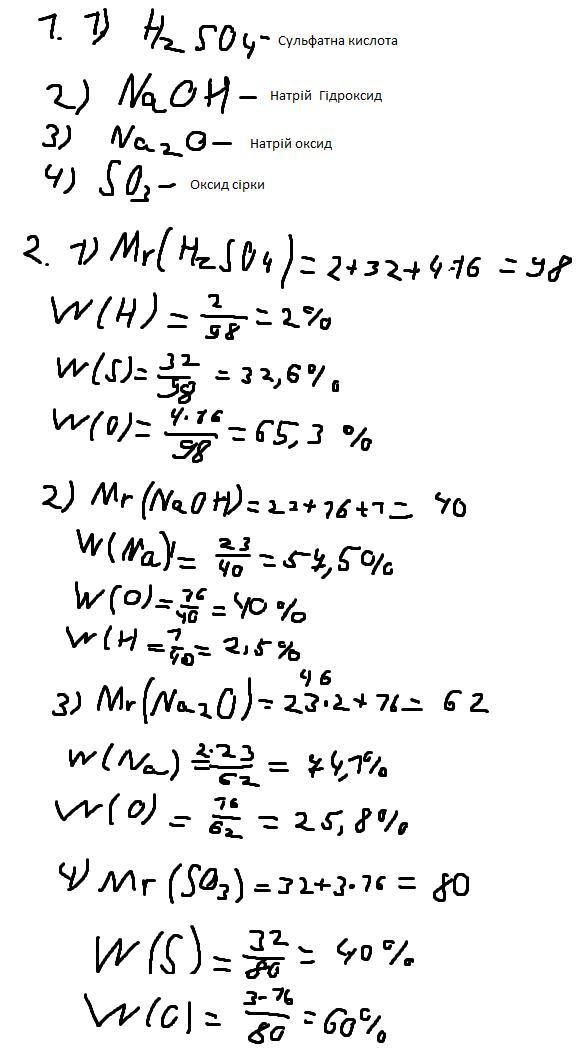 1. 1) H₂SO₄ - Сульфатна кислота
2) NaOH - Натрій Гідроксид
3) Na₂O - Натрій оксид
4) SO₃ - Оксид сірки
2. 1) Mr(H₂SO₄) = 2+32+4·16 = 98
W(H) = 2/98 = 2%
W(S) = 32/98 = 32,6%
W(O) = 4·16/98 = 65,3 %
2) Mr(NaOH) = 23+16+1 = 40
W(Na) = 23/40 = 57,5%
W(O) = 16/40 = 40%
W(H = 1/40 = 2,5%
46
3) Mr(Na₂O) = 23·2+16 = 62
W(Na) = 2·23/62 = 74,1%
W(O) = 16/62 = 25,8%
4) Mr(SO₃) = 32+3·16 = 80
W(S) = 32/80 = 40%
W(O) = 3·16/80 = 60%